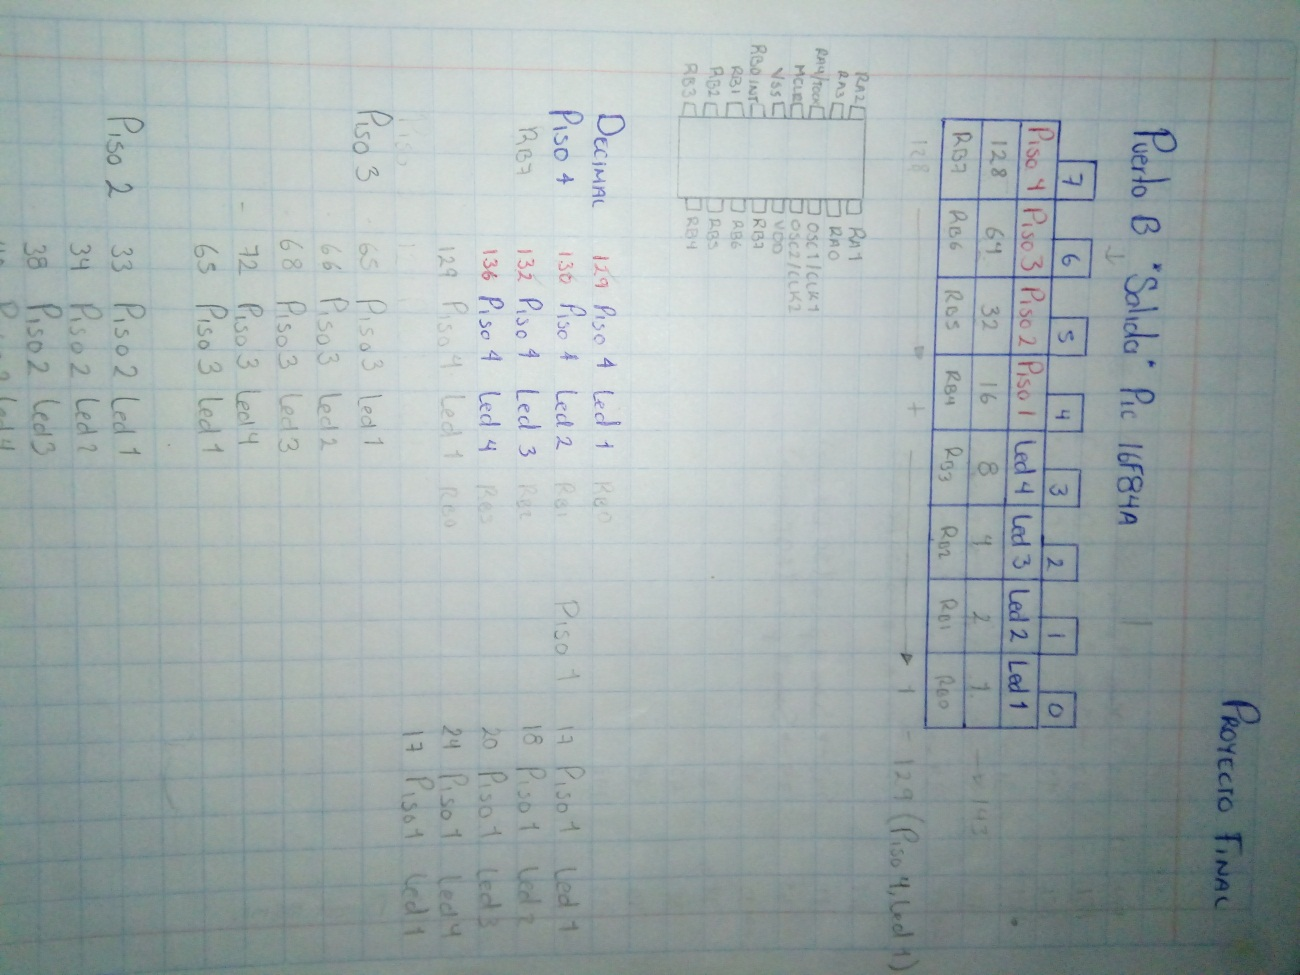 PROYECTO FINAL
Puerto B "Salida" Pic 16F84A
7 6 5 4 3 2 1 0
Piso 4 Piso 3 Piso 2 Piso 1 Led 4 Led 3 Led 2 Led 1
128 64 32 16 8 4 2 1
RB7 RB6 RB5 RB4 RB3 RB2 RB1 RB0
→ 143
128 + 1 = 129 (Piso 4, Led 1)
RA2 RA1
RA3 RA0
RA4/TOCK OSC1/CLK1
MCLR OSC2/CLK2
VSS VDD
RB0 INT RB7
RB1 RB6
RB2 RB5
RB3 RB4
DECIMAL
Piso 4
RB7
129 Piso 4 Led 1 RB0
130 Piso 4 Led 2 RB1
132 Piso 4 Led 3 RB2
136 Piso 4 Led 4 RB3
129 Piso 4 Led 1 RB0
Piso 1
17 Piso 1 Led 1
18 Piso 1 Led 2
20 Piso 1 Led 3
24 Piso 1 Led 4
17 Piso 1 Led 1
Piso
Piso 3
65 Piso 3 Led 1
66 Piso 3 Led 2
68 Piso 3 Led 3
72 Piso 3 Led 4
65 Piso 3 Led 1
Piso 2
33 Piso 2 Led 1
34 Piso 2 Led 2
38 Piso 2 Led 3
Led 4